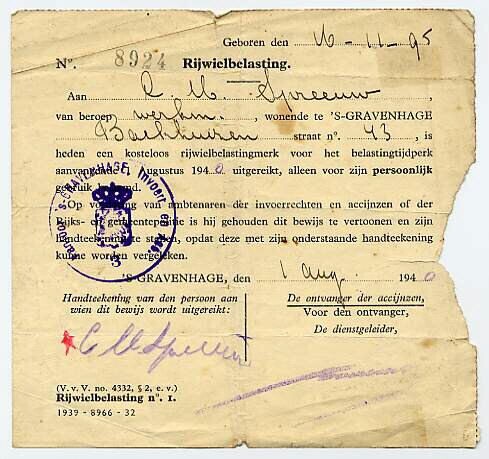 Geboren den 16-11-95
Nº. 8924 Rijwielbelasting.
Aan C. M. Spreeuw,
van beroep werkm., wonende te 'S-GRAVENHAGE
Backhuizen straat nº. 43, is
heden een kosteloos rijwielbelastingmerk voor het belastingtijdperk
aanvangende 1 Augustus 1940 uitgereikt, alleen voor zijn persoonlijk
gebruik
Op van ambtenaren der invoerrechten en accijnzen of der
Rijks- of gemeentepolitie is hij gehouden dit bewijs te vertoonen en zijn
handteekening te stellen, opdat deze met zijn onderstaande handteekening
kunne worden vergeleken.
'S-GRAVENHAGE, den 1 Aug. 1940
Handteekening van den persoon aan
wien dit bewijs wordt uitgereikt:
C M Spreeuw
De ontvanger der accijnzen,
Voor den ontvanger,
De dienstgeleider,
(V. v. V. no. 4332, § 2, e. v.)
Rijwielbelasting nº. 1.
1939 - 8966 - 32
'S-GRAVENHAGE, Invoerr. en